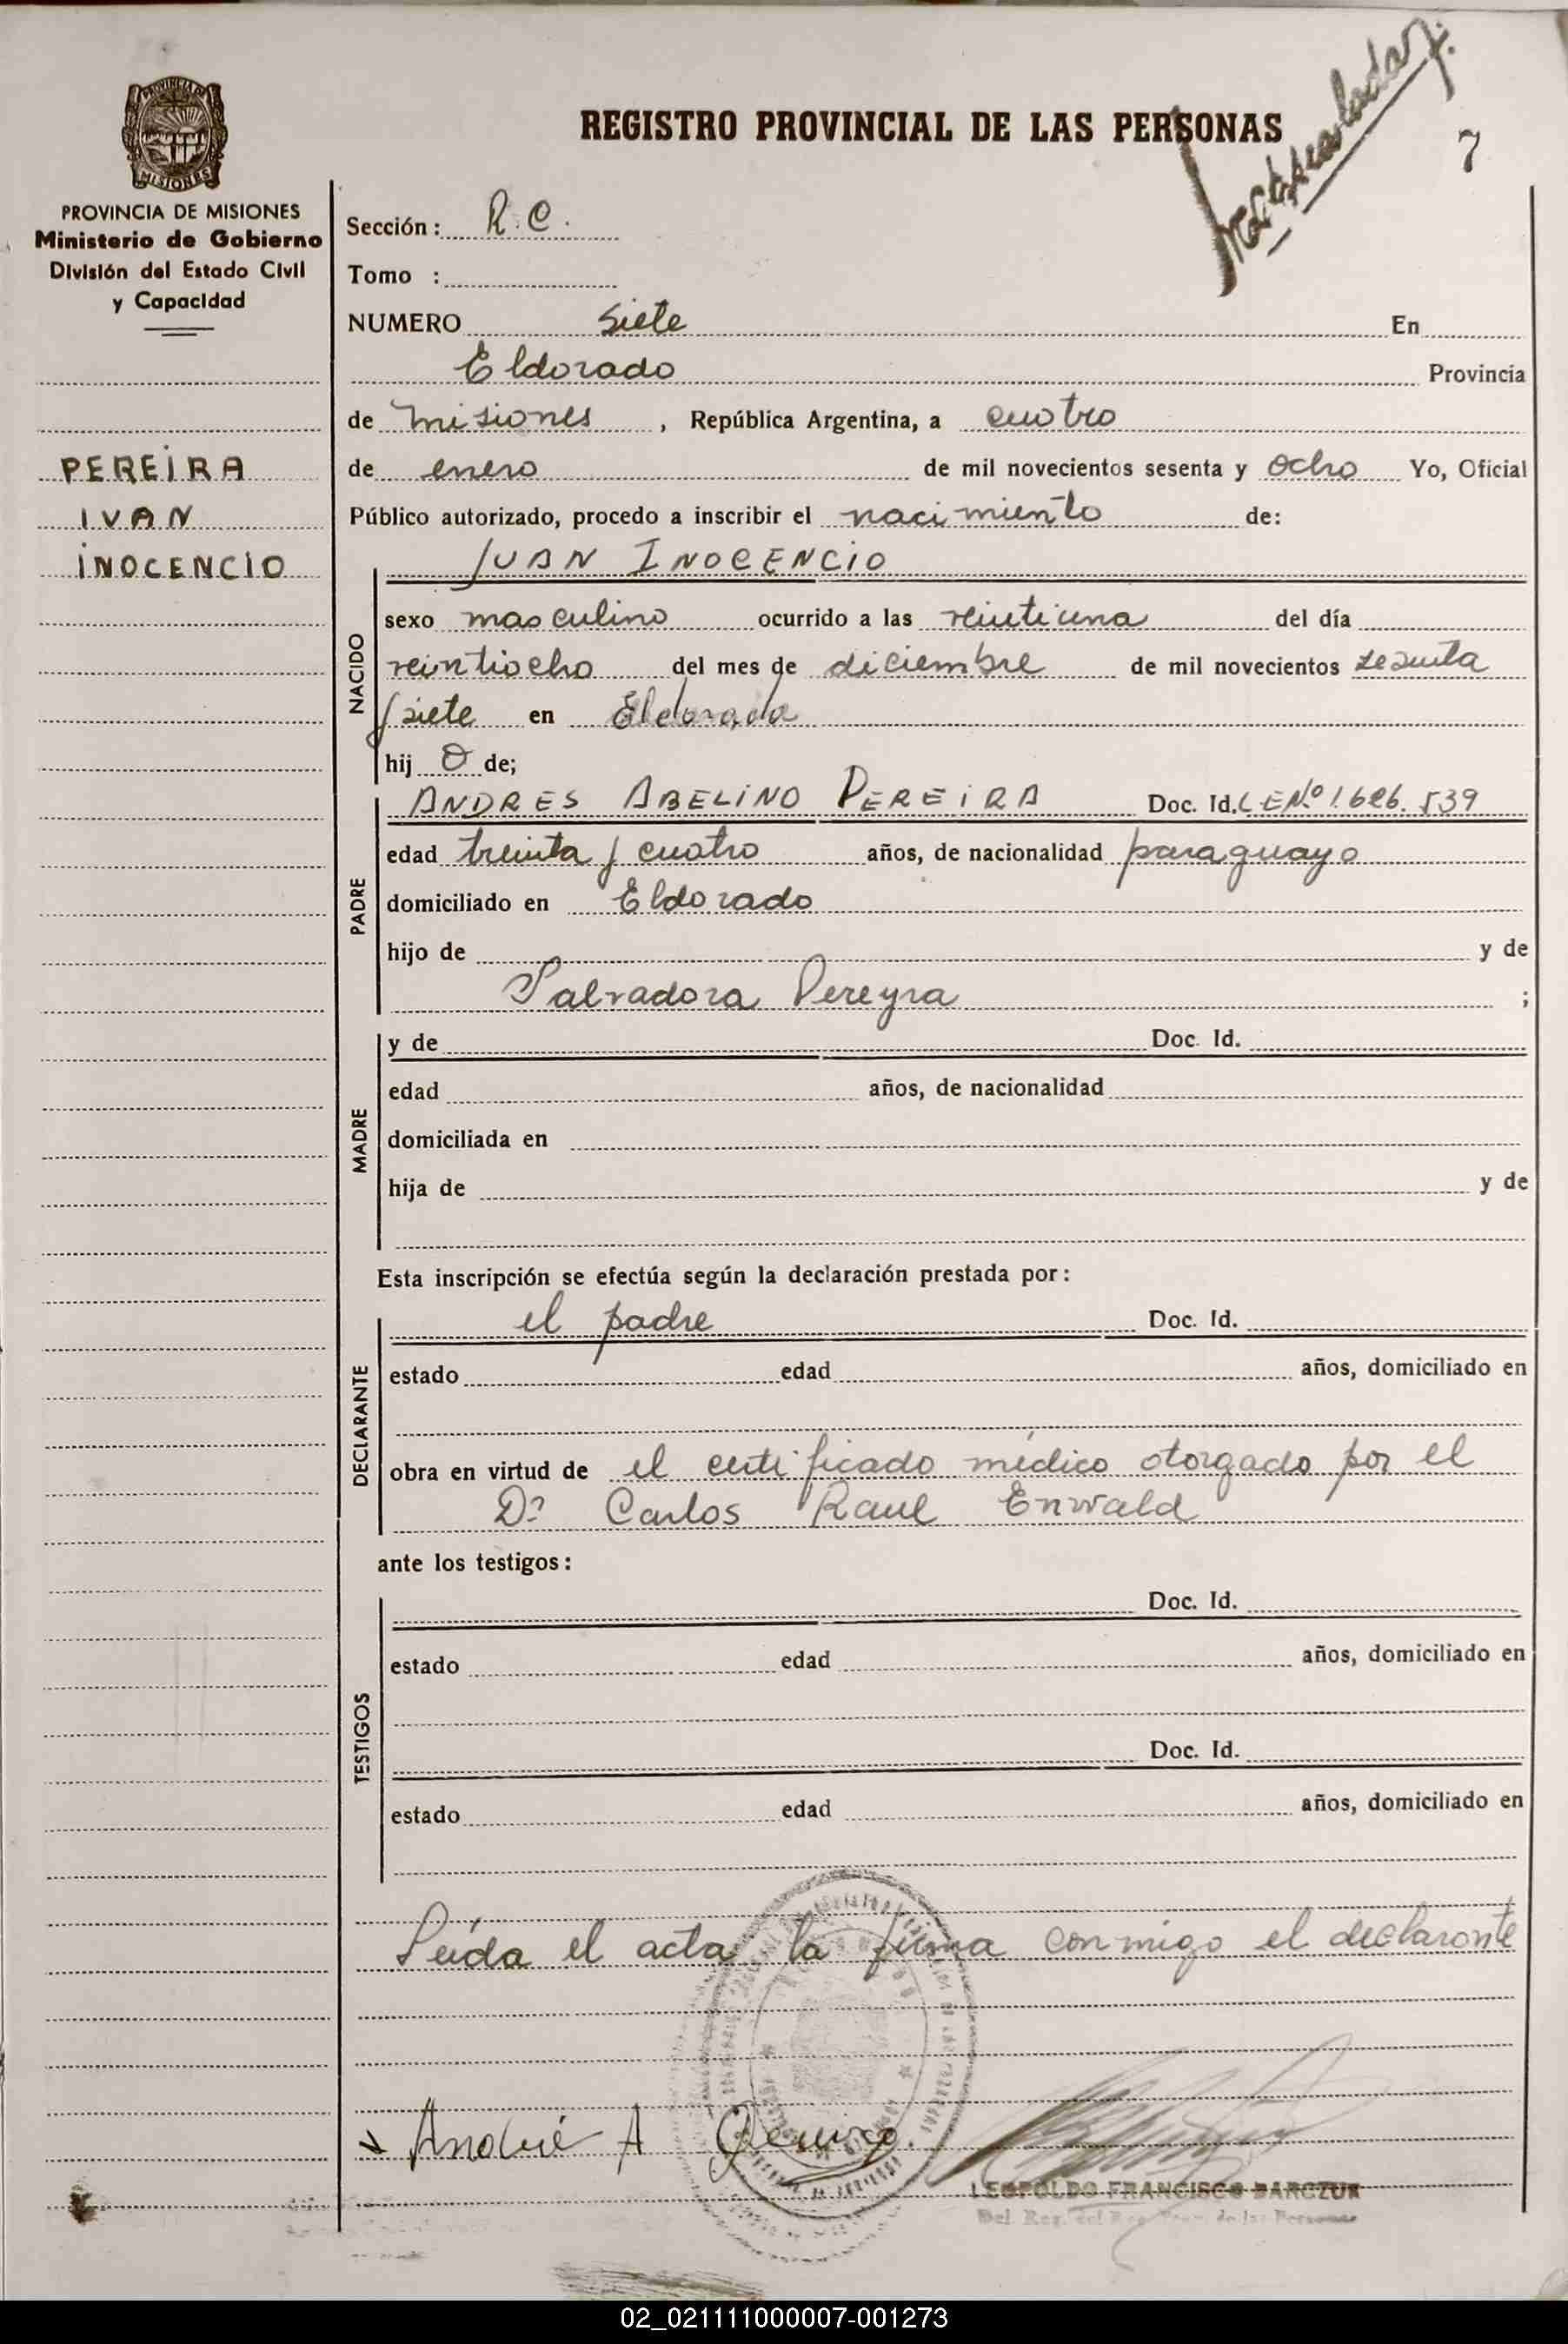 REGISTRO PROVINCIAL DE LAS PERSONAS
7
PROVINCIA DE MISIONES
Ministerio de Gobierno
División del Estado Civil
y Capacidad
MISIONES
PEREIRA
IVAN
INOCENCIO
Sección: R.C.
Tomo :
NUMERO siete En
Eldorado Provincia
de misiones, República Argentina, a cuatro
de enero de mil novecientos sesenta y ocho Yo, Oficial
Público autorizado, procedo a inscribir el nacimiento de:
NACIDO
IVAN INOCENCIO
sexo masculino ocurrido a las veintiuna del día
veintiocho del mes de diciembre de mil novecientos sesenta
y siete en Eldorado
hij o de;
PADRE
ANDRES ABELINO PEREIRA Doc. Id. L E Nº 1.626.539
edad treinta y cuatro años, de nacionalidad paraguayo
domiciliado en Eldorado
hijo de y de
Salvadora Pereyra ;
MADRE
y de Doc. Id.
edad años, de nacionalidad
domiciliada en
hija de y de
Esta inscripción se efectúa según la declaración prestada por:
DECLARANTE
el padre Doc. Id.
estado edad años, domiciliado en
obra en virtud de el certificado médico otorgado por el
Dr Carlos Raul Enwald
ante los testigos:
TESTIGOS
Doc. Id.
estado edad años, domiciliado en
Doc. Id.
estado edad años, domiciliado en
Leída el acta la firma conmigo el declarante
André A
LEOPOLDO FRANCISCO BARCZUK
02_021111000007-001273